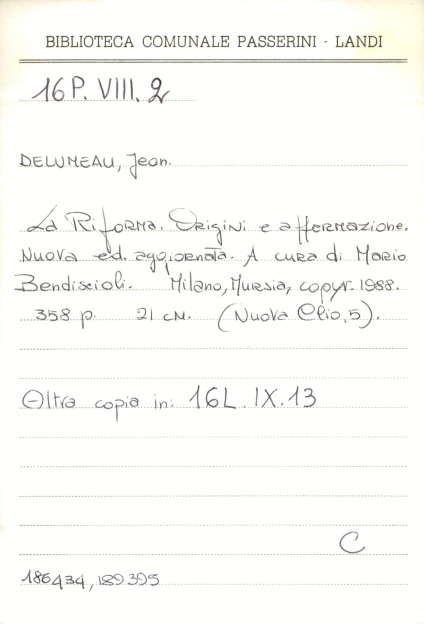 BIBLIOTECA COMUNALE PASSERINI - LANDI
16 P. VIII. 2
DELUMEAU, Jean.
La Riforma. Origini e affermazione.
Nuova ed. aggiornata. A cura di Mario
Bendiscioli. Milano, Mursia, copyr. 1988.
358 p. 21 cm. (Nuova Clio, 5).
Altra copia in: 16L. IX. 13
C
186434, 189395